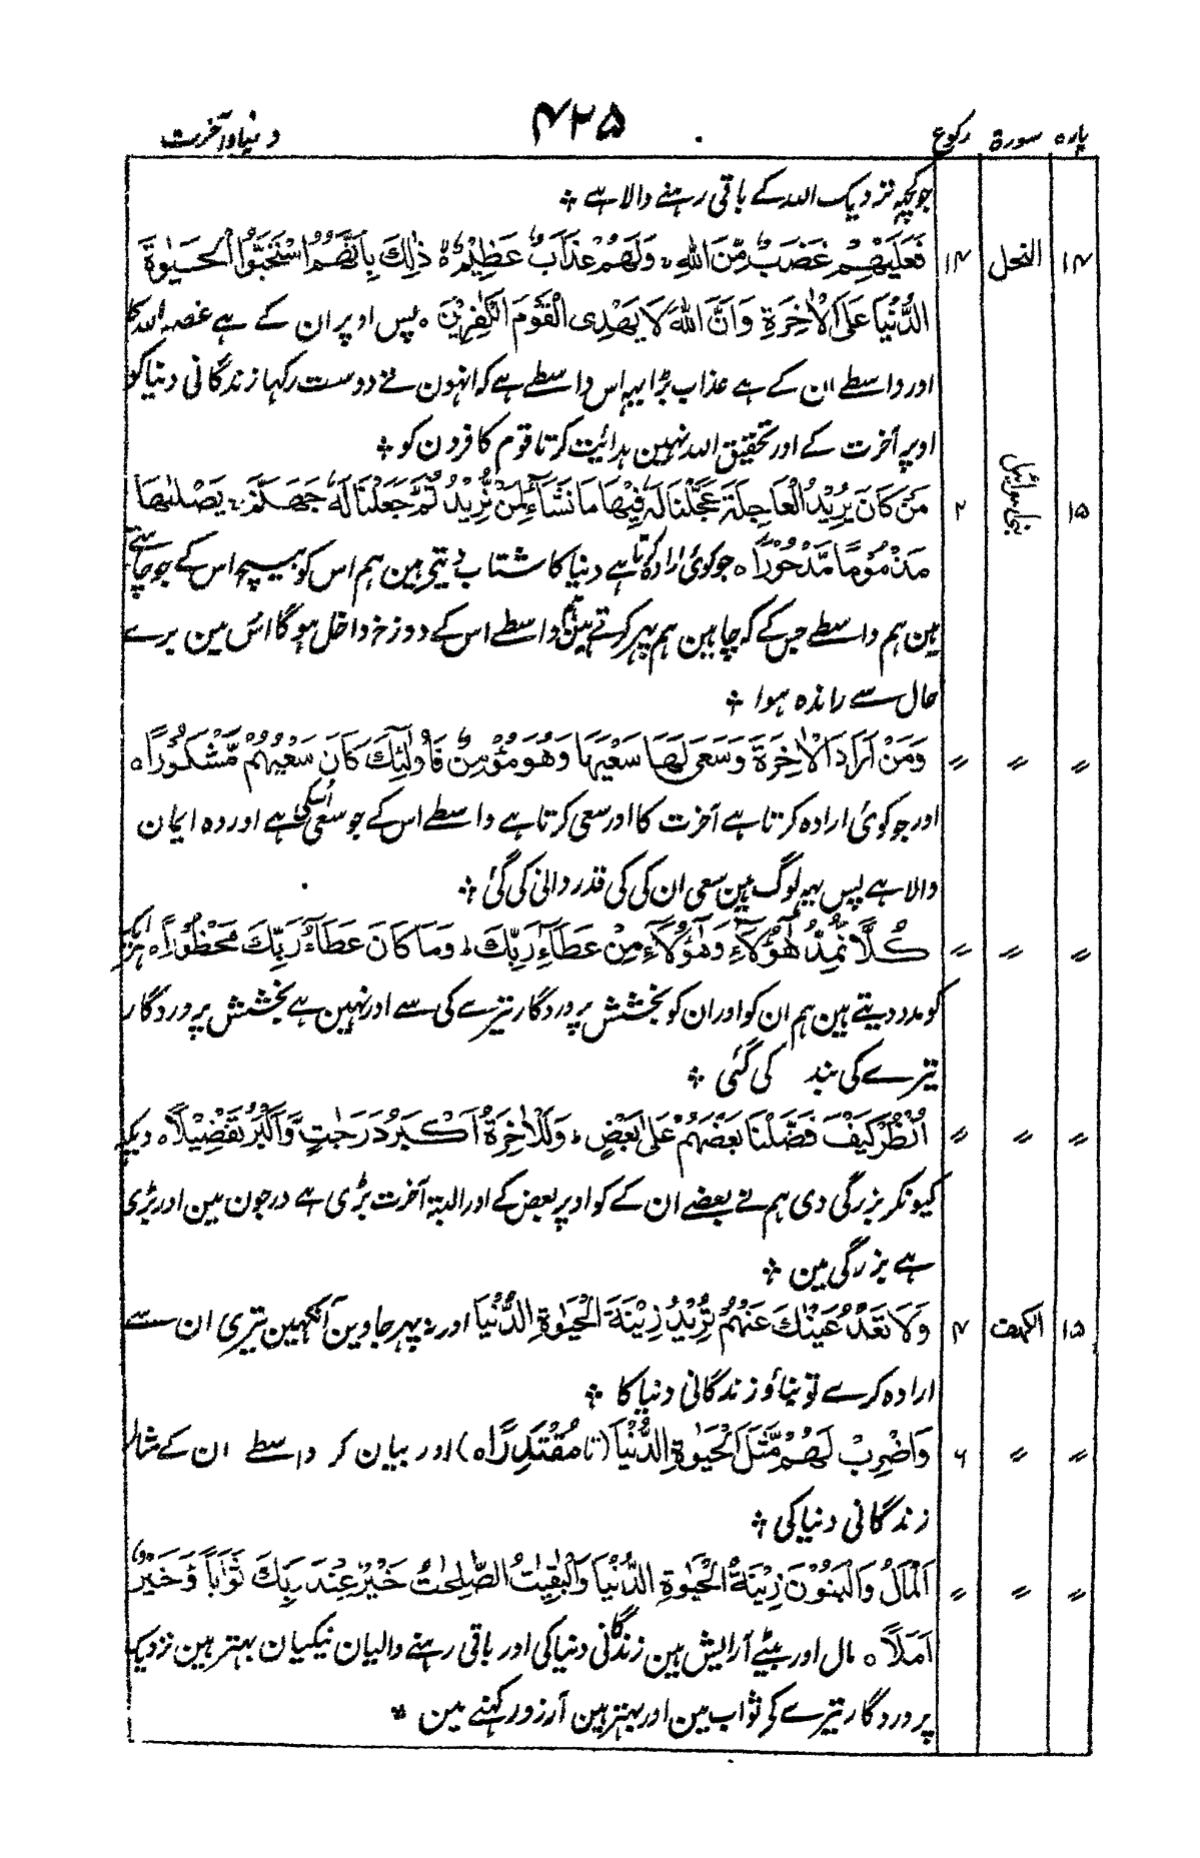 پارہ سورۃ رکوع ۴۲۵ دنیا و آخرت
جو کچھ نزدیک اللہ کے باقی رہنے والا ہے ٭
۱۴ النحل ۱۴ فَعَلَيْهِمْ غَضَبٌ مِّنَ اللّٰهِ ۚ وَلَهُمْ عَذَابٌ عَظِيْمٌ ۵ ذٰلِكَ بِاَنَّهُمُ اسْتَحَبُّوا الْحَيٰوةَ
الدُّنْيَا عَلَى الْاٰخِرَةِ وَاَنَّ اللّٰهَ لَا يَهْدِى الْقَوْمَ الْكٰفِرِيْنَ ۵ پس اوپر ان کے ہے غصہ اللہ کا
اور واسطے ان کے ہے عذاب بڑا یہہ اس واسطے ہے کہ انہون نے دوست رکہا زندگانی دنیا کو
اوپر آخرت کے اور تحقیق اللہ نہین ہدائیت کرتا قوم کافرون کو ٭
۱۵ بنی اسرائیل ۲ مَنْ كَانَ يُرِيْدُ الْعَاجِلَةَ عَجَّلْنَا لَهٗ فِيْهَا مَا نَشَآءُ لِمَنْ نُّرِيْدُ ثُمَّ جَعَلْنَا لَهٗ جَهَنَّمَ ۚ يَصْلٰىهَا
مَذْمُوْمًا مَّدْحُوْرًا ۵ جو کوئی ارادہ کرتا ہے دنیا کا شتاب دیتے ہین ہم اس کو بیچ اس کے جو چاہتے
ہین ہم واسطے جس کے کہ چاہین ہم پہر کرتے ہین ہم واسطے اس کے دوزخ داخل ہوگا اس مین برے
حال سے راندہ ہوا ٭
〃 〃 〃 وَمَنْ اَرَادَ الْاٰخِرَةَ وَسَعٰى لَهَا سَعْيَهَا وَهُوَ مُؤْمِنٌ فَاُولٰٓئِكَ كَانَ سَعْيُهُمْ مَّشْكُوْرًا ۵
اور جو کوئی ارادہ کرتا ہے آخرت کا اور سعی کرتا ہے واسطے اس کے جو سعی اسکی ہے اور وہ ایمان
والا ہے پس یہہ لوگ ہین سعی ان کی کی قدردانی کی گئی ٭
〃 〃 〃 كُلًّا نُّمِدُّ هٰٓؤُلَآءِ وَهٰٓؤُلَآءِ مِنْ عَطَآءِ رَبِّكَ ؕ وَمَا كَانَ عَطَآءُ رَبِّكَ مَحْظُوْرًا ۵ ہر ایک
کو مدد دیتے ہین ہم ان کو اور ان کو بخشش پروردگار تیرے کی سے اور نہین ہے بخشش پروردگار
تیرے کی بند کی گئی ٭
〃 〃 〃 اُنْظُرْ كَيْفَ فَضَّلْنَا بَعْضَهُمْ عَلٰى بَعْضٍ ؕ وَلَلْاٰخِرَةُ اَكْبَرُ دَرَجٰتٍ وَّاَكْبَرُ تَفْضِيْلًا ۵ دیکہہ
کیونکر بزرگی دی ہم نے بعضے ان کے کو اوپر بعض کے اور البتہ آخرت بڑی ہے درجون مین اور بڑی
ہے بزرگی مین ٭
۱۵ الکہف ۴ وَلَا تَعْدُ عَيْنٰكَ عَنْهُمْ تُرِيْدُ زِيْنَةَ الْحَيٰوةِ الدُّنْيَا اور نہ پہر جاوین آنکہین تیری ان سے
ارادہ کرے تو بناؤ زندگانی دنیا کا ٭
〃 〃 ۶ وَاضْرِبْ لَهُمْ مَّثَلَ الْحَيٰوةِ الدُّنْيَا (تا مُقْتَدِرًا ۵) اور بیان کر واسطے ان کے مثال
زندگانی دنیا کی ٭
〃 〃 〃 اَلْمَالُ وَالْبَنُوْنَ زِيْنَةُ الْحَيٰوةِ الدُّنْيَا وَالْبٰقِيٰتُ الصّٰلِحٰتُ خَيْرٌ عِنْدَ رَبِّكَ ثَوَابًا وَّخَيْرٌ
اَمَلًا ۵ مال اور بیٹے آرایش ہین زندگانی دنیا کی اور باقی رہنے والیان نیکیان بہتر ہین نزدیک
پروردگار تیرے کے ثواب مین اور بہتر ہین آرزو رکہنے مین ٭